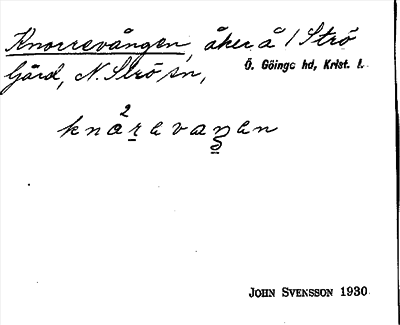 Knorrevången, åker å 1 Strö
Gård, N. Strö sn,
Ö. Göinge hd, Krist. l.
2
knåravaŋen
JOHN SVENSSON 1930.